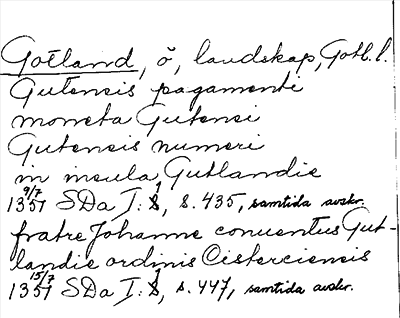 Gotland, ö, landskap, Gotl. l.
Gutensis pagamenti
moneta Gutensi
Gutensis numeri
in insula Gutlandie
9/7 1351 SDa I:1, s. 435, samtida avskr.
fratre Johanne conuentus Gut-
landie ordinis Cisterciensis
15/7 1351 SDa I:1, s. 447, samtida avskr.